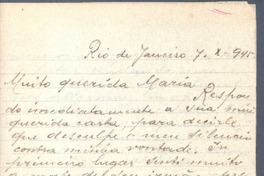 Rio de Janeiro 7. X. 945.
Muito querida Maria
Respon
do imediatamente a sua mui
querida carta, para decirle
que desculpe o meu silencio
contra minha vontade. En
primeiro lugar sinto muito